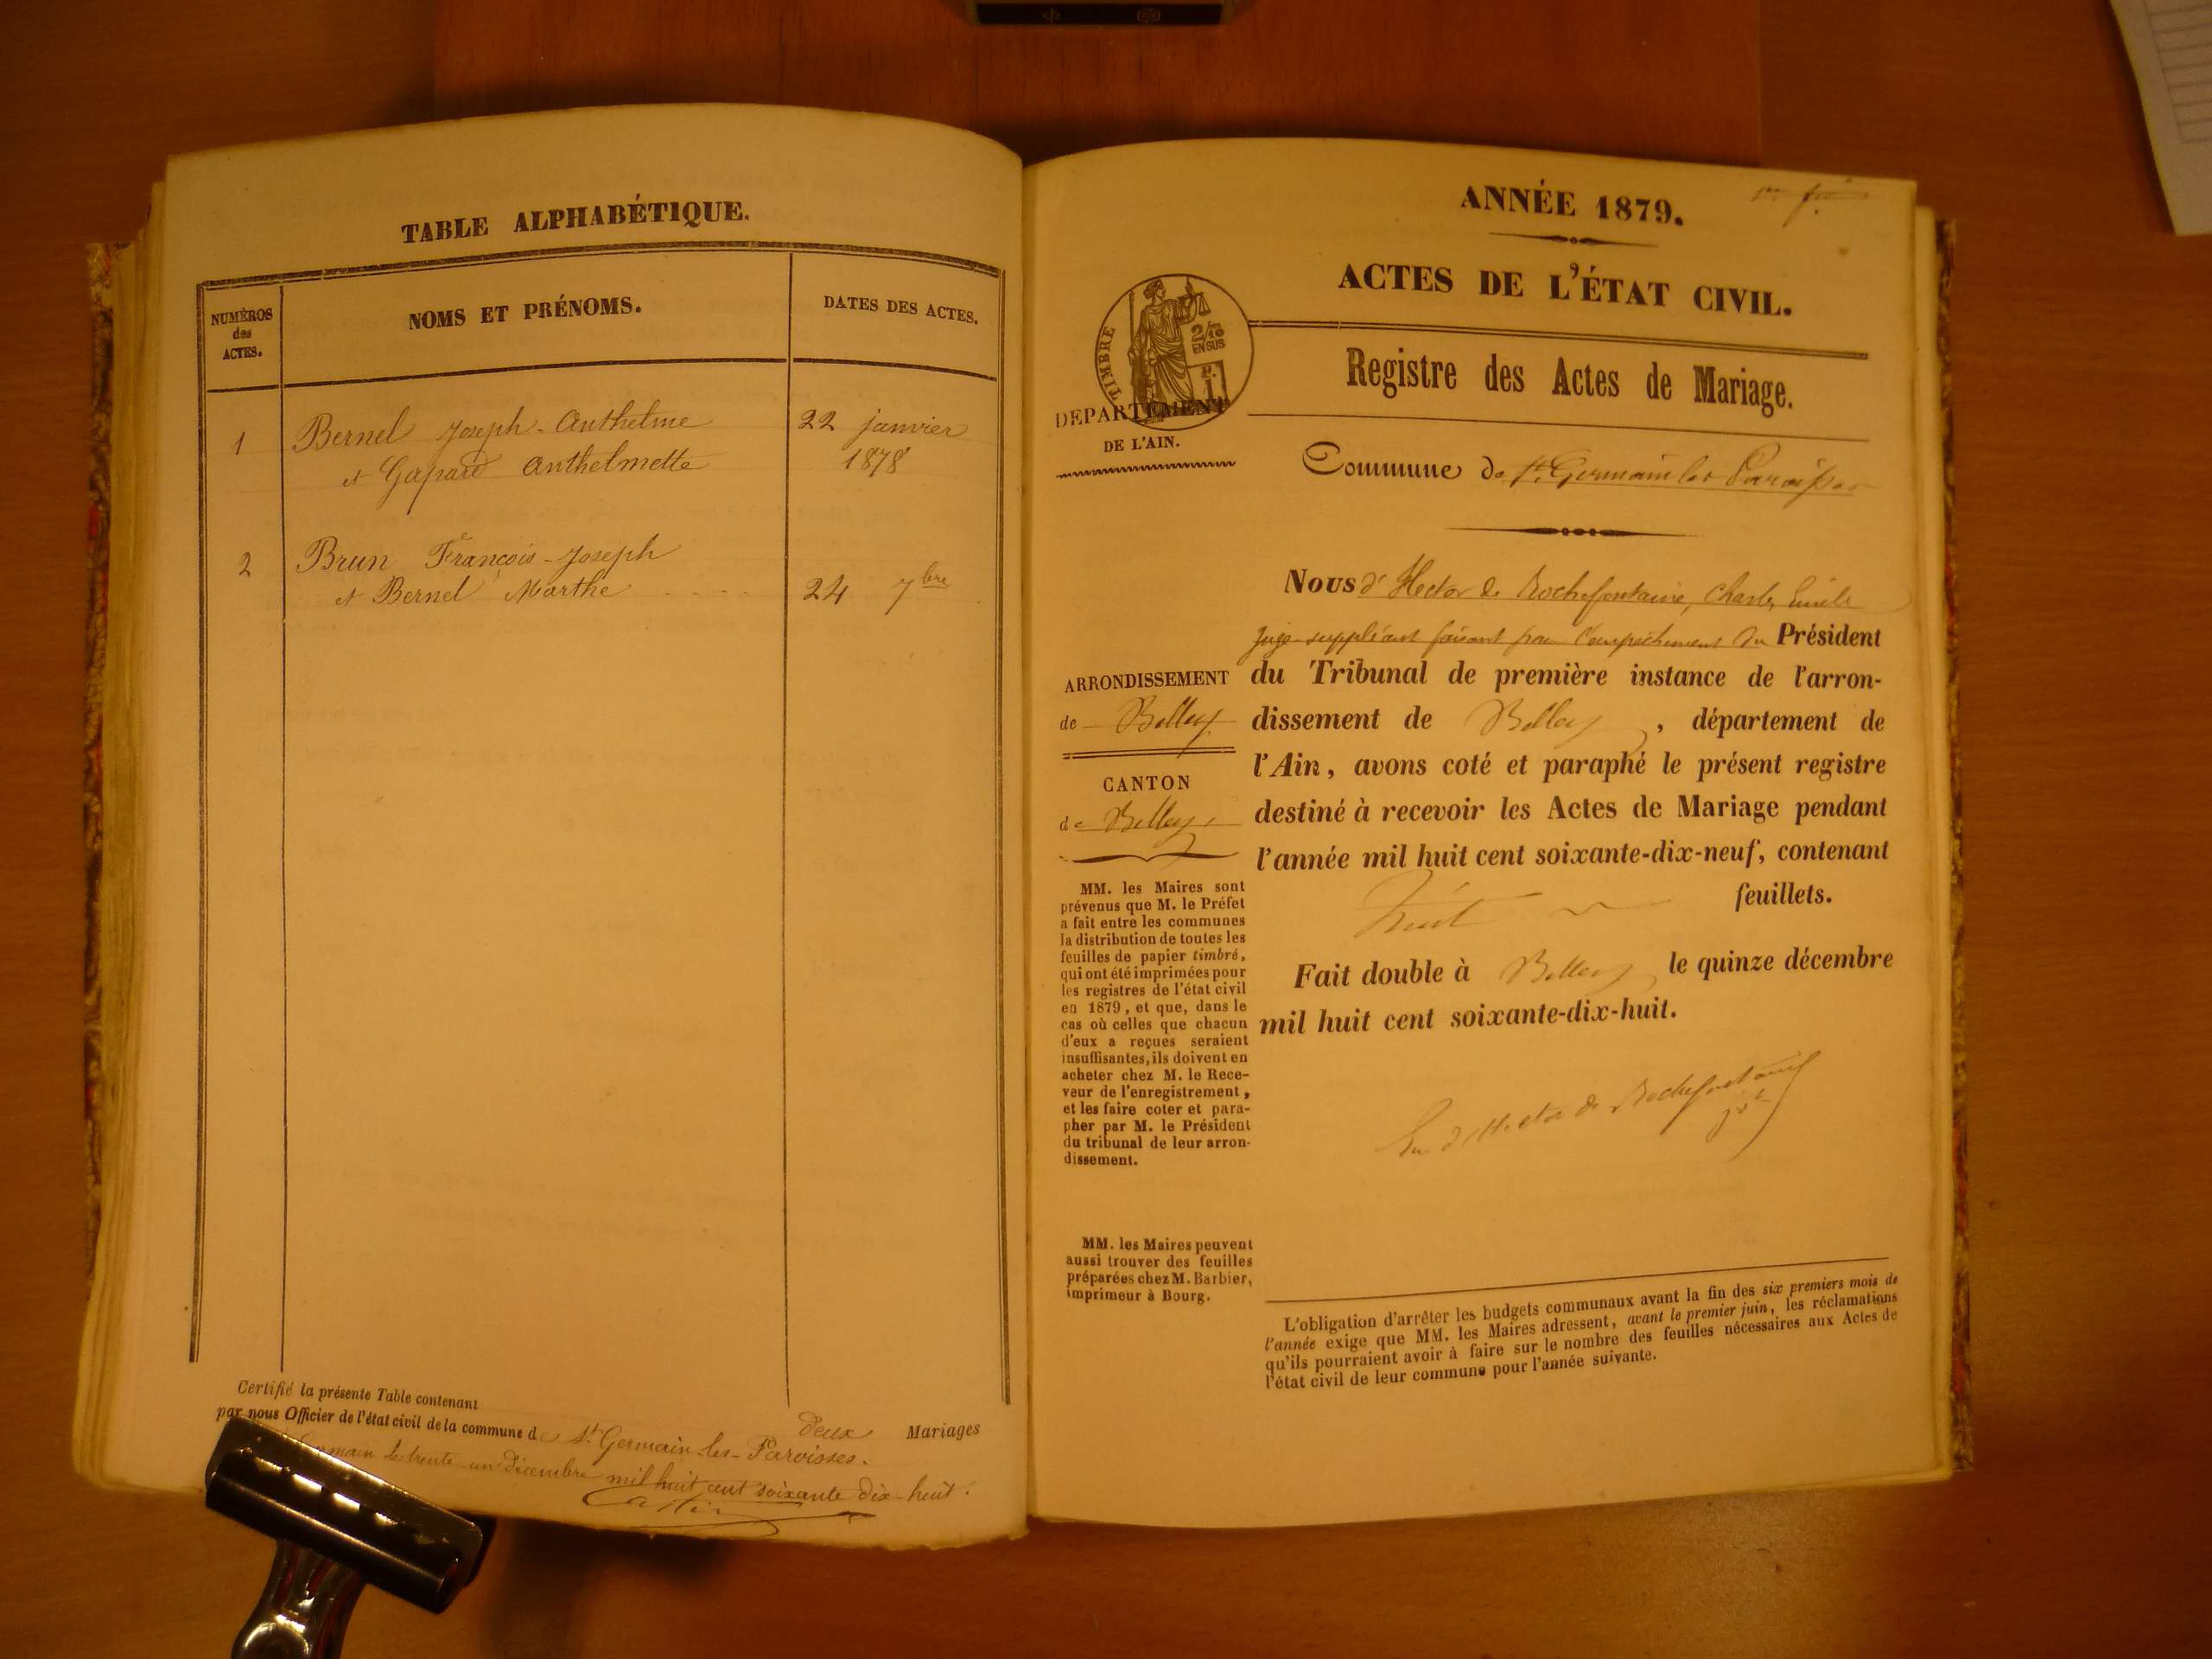 TABLE ALPHABÉTIQUE.
NUMÉROS
des
ACTES.
NOMS ET PRÉNOMS.
DATES DES ACTES.
1
Bernel Joseph-Anthelme
22 janvier
et Gapard Anthelmette
1878
2
Brun François-Joseph
et Bernel Marthe
24 7bre
Certifié la présente Table contenant deux Mariages
par nous Officier de l'état civil de la commune de St Germain-les-Paroisses.
le trente un décembre mil huit cent soixante dix-huit.
ANNÉE 1879.
ACTES DE L'ÉTAT CIVIL.
TIMBRE
2/10
EN SUS
DEPARTEMENT
DE L'AIN.
Registre des Actes de Mariage.
Commune de St. Germain les Paroisses
ARRONDISSEMENT
de Belley
CANTON
de Belley
MM. les Maires sont
prévenus que M. le Préfet
a fait entre les communes
la distribution de toutes les
feuilles de papier timbré,
qui ont été imprimées pour
les registres de l'état civil
en 1879, et que, dans le
cas où celles que chacun
d'eux a reçues seraient
insuffisantes, ils doivent en
acheter chez M. le Rece-
veur de l'enregistrement,
et les faire coter et para-
pher par M. le Président
du tribunal de leur arron-
dissement.
MM. les Maires peuvent
aussi trouver des feuilles
préparées chez M. Barbier,
imprimeur à Bourg.
Nous d'Hector de Rochefontaine, Charles Emile
juge-suppléant faisant pour l'empêchement du Président
du Tribunal de première instance de l'arron-
dissement de Belley, département de
l'Ain, avons coté et paraphé le présent registre
destiné à recevoir les Actes de Mariage pendant
l'année mil huit cent soixante-dix-neuf, contenant
huit feuillets.
Fait double à Belley le quinze décembre
mil huit cent soixante-dix-huit.
d'Hector de Rochefontaine
L'obligation d'arrêter les budgets communaux avant la fin des six premiers mois de
l'année exige que MM. les Maires adressent, avant le premier juin, les réclamations
qu'ils pourraient avoir à faire sur le nombre des feuilles nécessaires aux Actes de
l'état civil de leur commune pour l'année suivante.